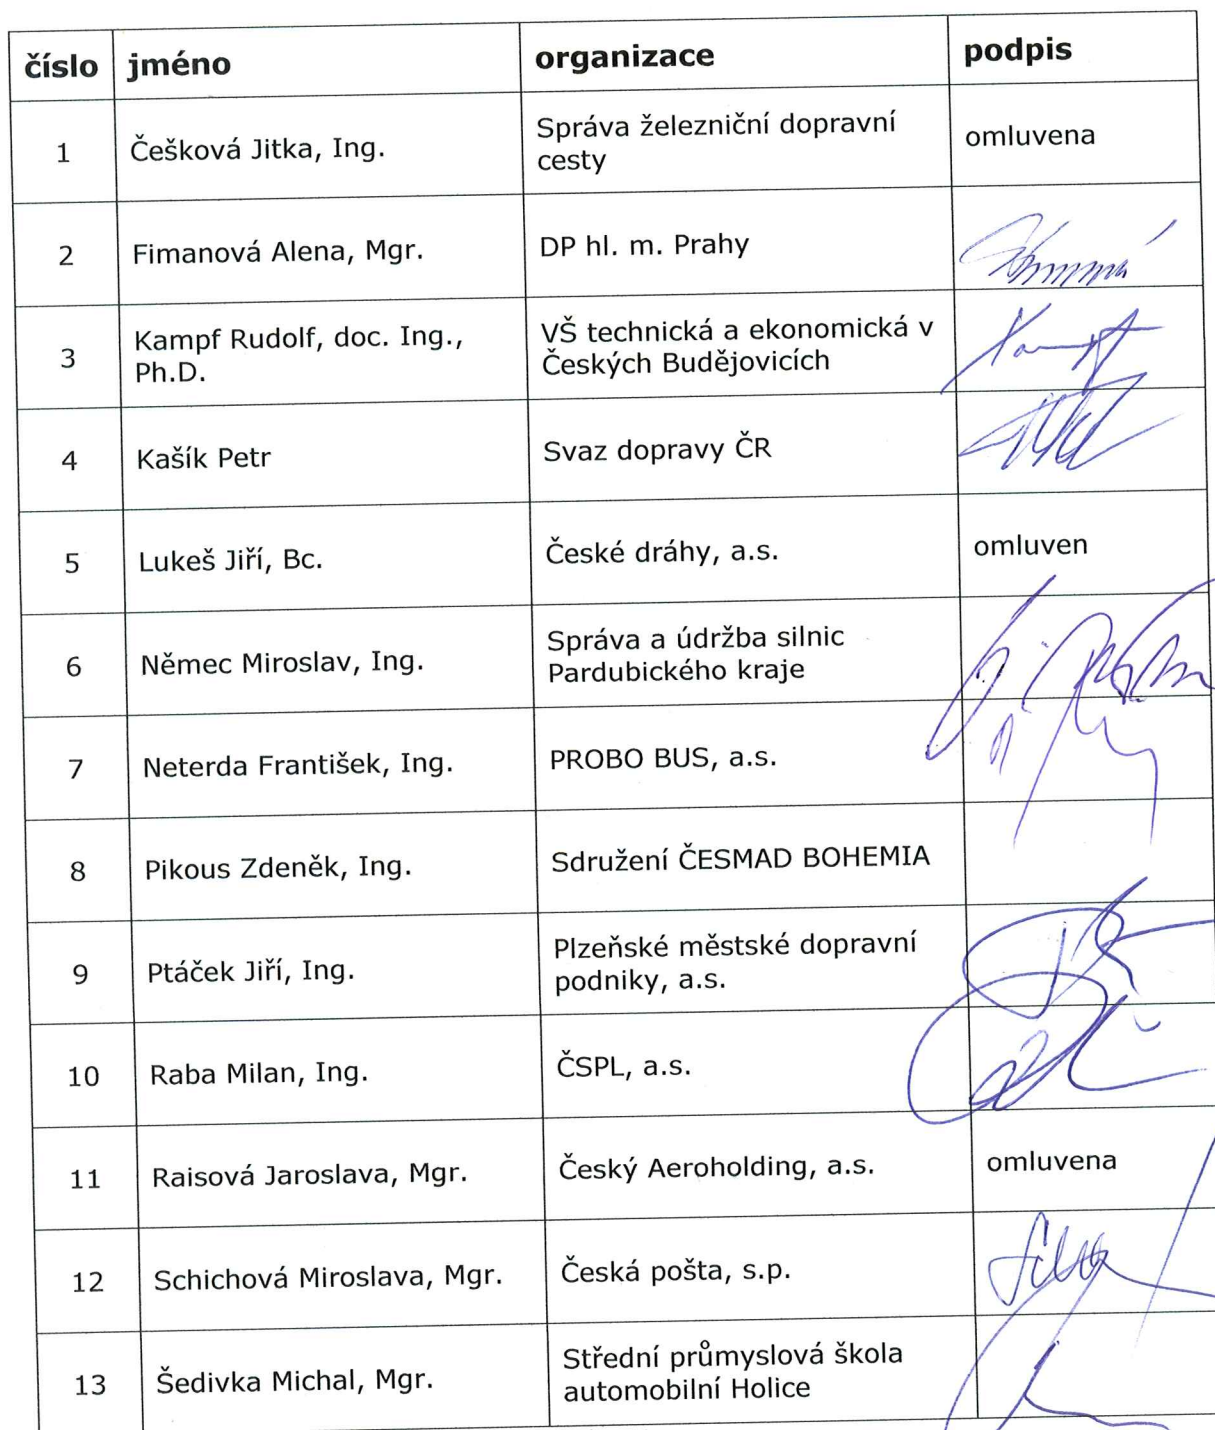 číslo jméno organizace podpis
1 Češková Jitka, Ing. Správa železniční dopravní omluvena
cesty
2 Fimanová Alena, Mgr. DP hl. m. Prahy
3 Kampf Rudolf, doc. Ing., VŠ technická a ekonomická v
Ph.D. Českých Budějovicích
4 Kašík Petr Svaz dopravy ČR
5 Lukeš Jiří, Bc. České dráhy, a.s. omluven
6 Němec Miroslav, Ing. Správa a údržba silnic
Pardubického kraje
7 Neterda František, Ing. PROBO BUS, a.s.
8 Pikous Zdeněk, Ing. Sdružení ČESMAD BOHEMIA
9 Ptáček Jiří, Ing. Plzeňské městské dopravní
podniky, a.s.
10 Raba Milan, Ing. ČSPL, a.s.
11 Raisová Jaroslava, Mgr. Český Aeroholding, a.s. omluvena
12 Schichová Miroslava, Mgr. Česká pošta, s.p.
13 Šedivka Michal, Mgr. Střední průmyslová škola
automobilní Holice